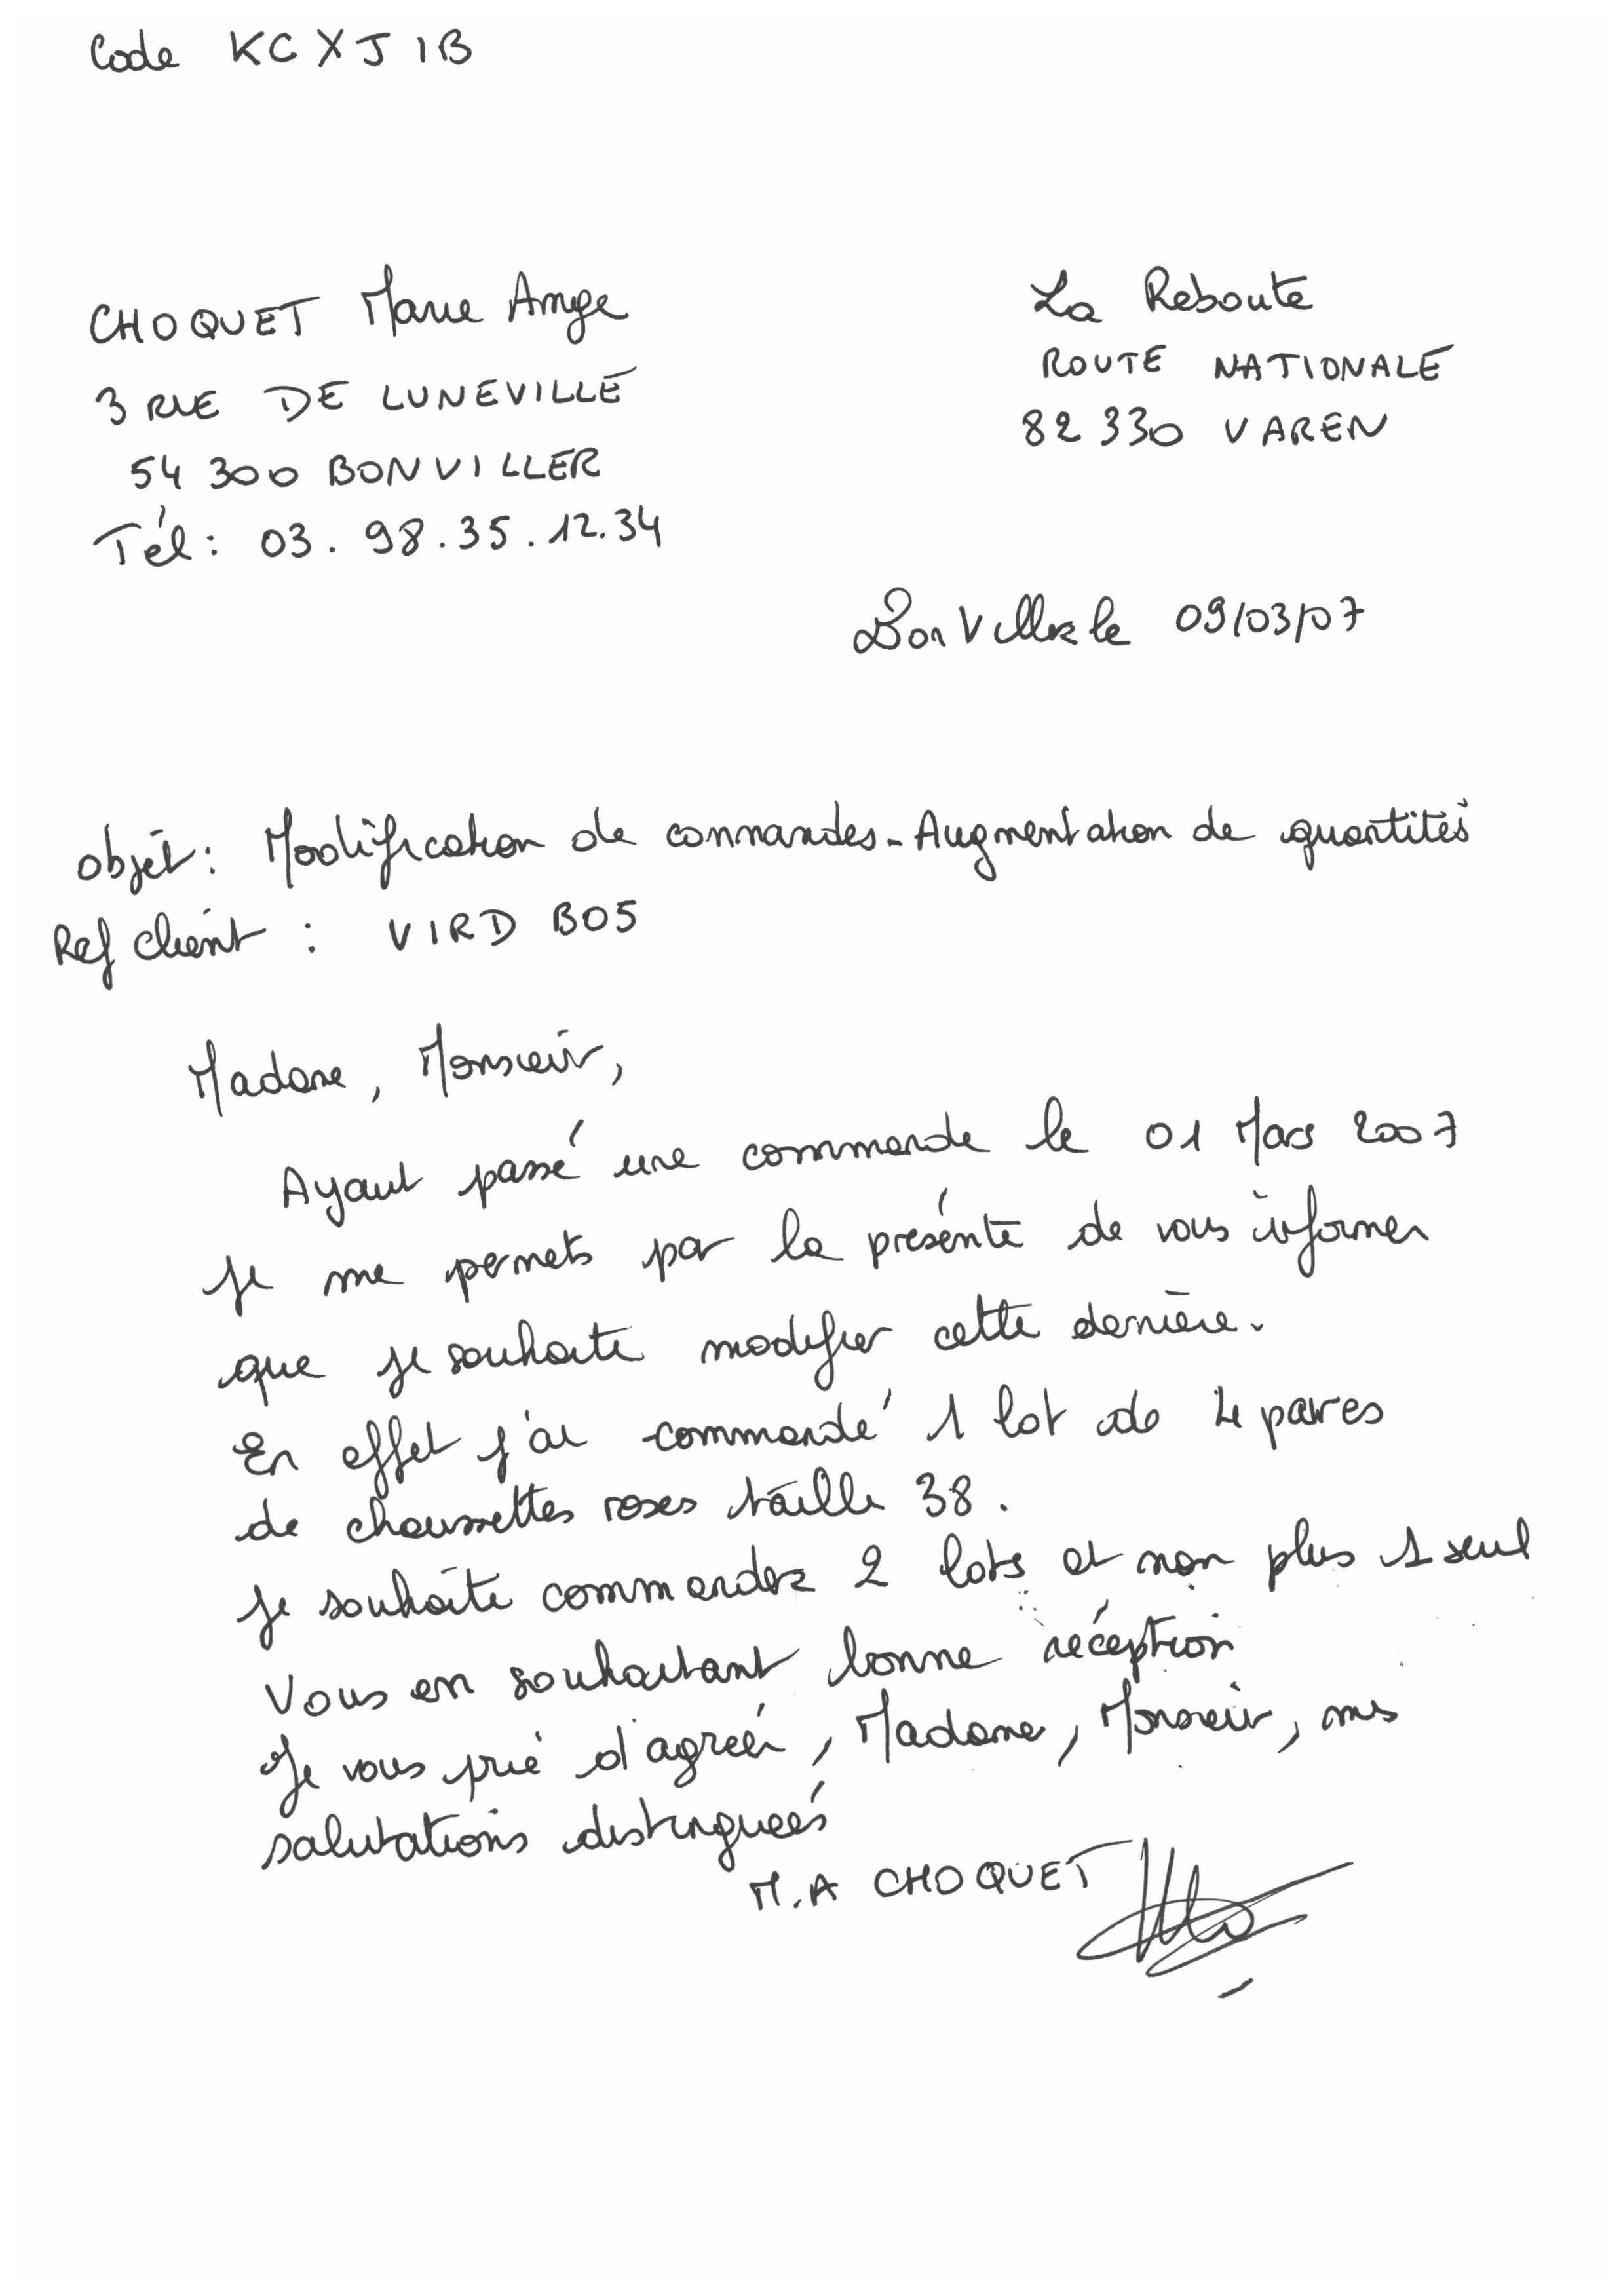 Code KCXJ1B
CHOQUET Marie Ange
3 RUE DE LUNEVILLE
54 300 BONVILLER
Tél : 03. 98. 35. 12. 34
La Reboute
ROUTE NATIONALE
82 330 VAREN
BonViller le 09/03/07
Objet : Modification de commandes - Augmentation de quantités
Ref client : VIRD B05
Madame, Monsieur,
Ayant passé une commande le 01 Mars 2007
je me permets par la présente de vous informer
que je souhaite modifier cette dernière.
En effet j'ai commandé 1 lot de 4 paires
de chaussettes roses taille 38.
Je souhaite commander 2 lots et non plus 1 seul
Vous en souhaitant bonne réception
Je vous prie d'agréer, Madame, Monsieur, mes
salutations distinguées
M.A CHOQUET